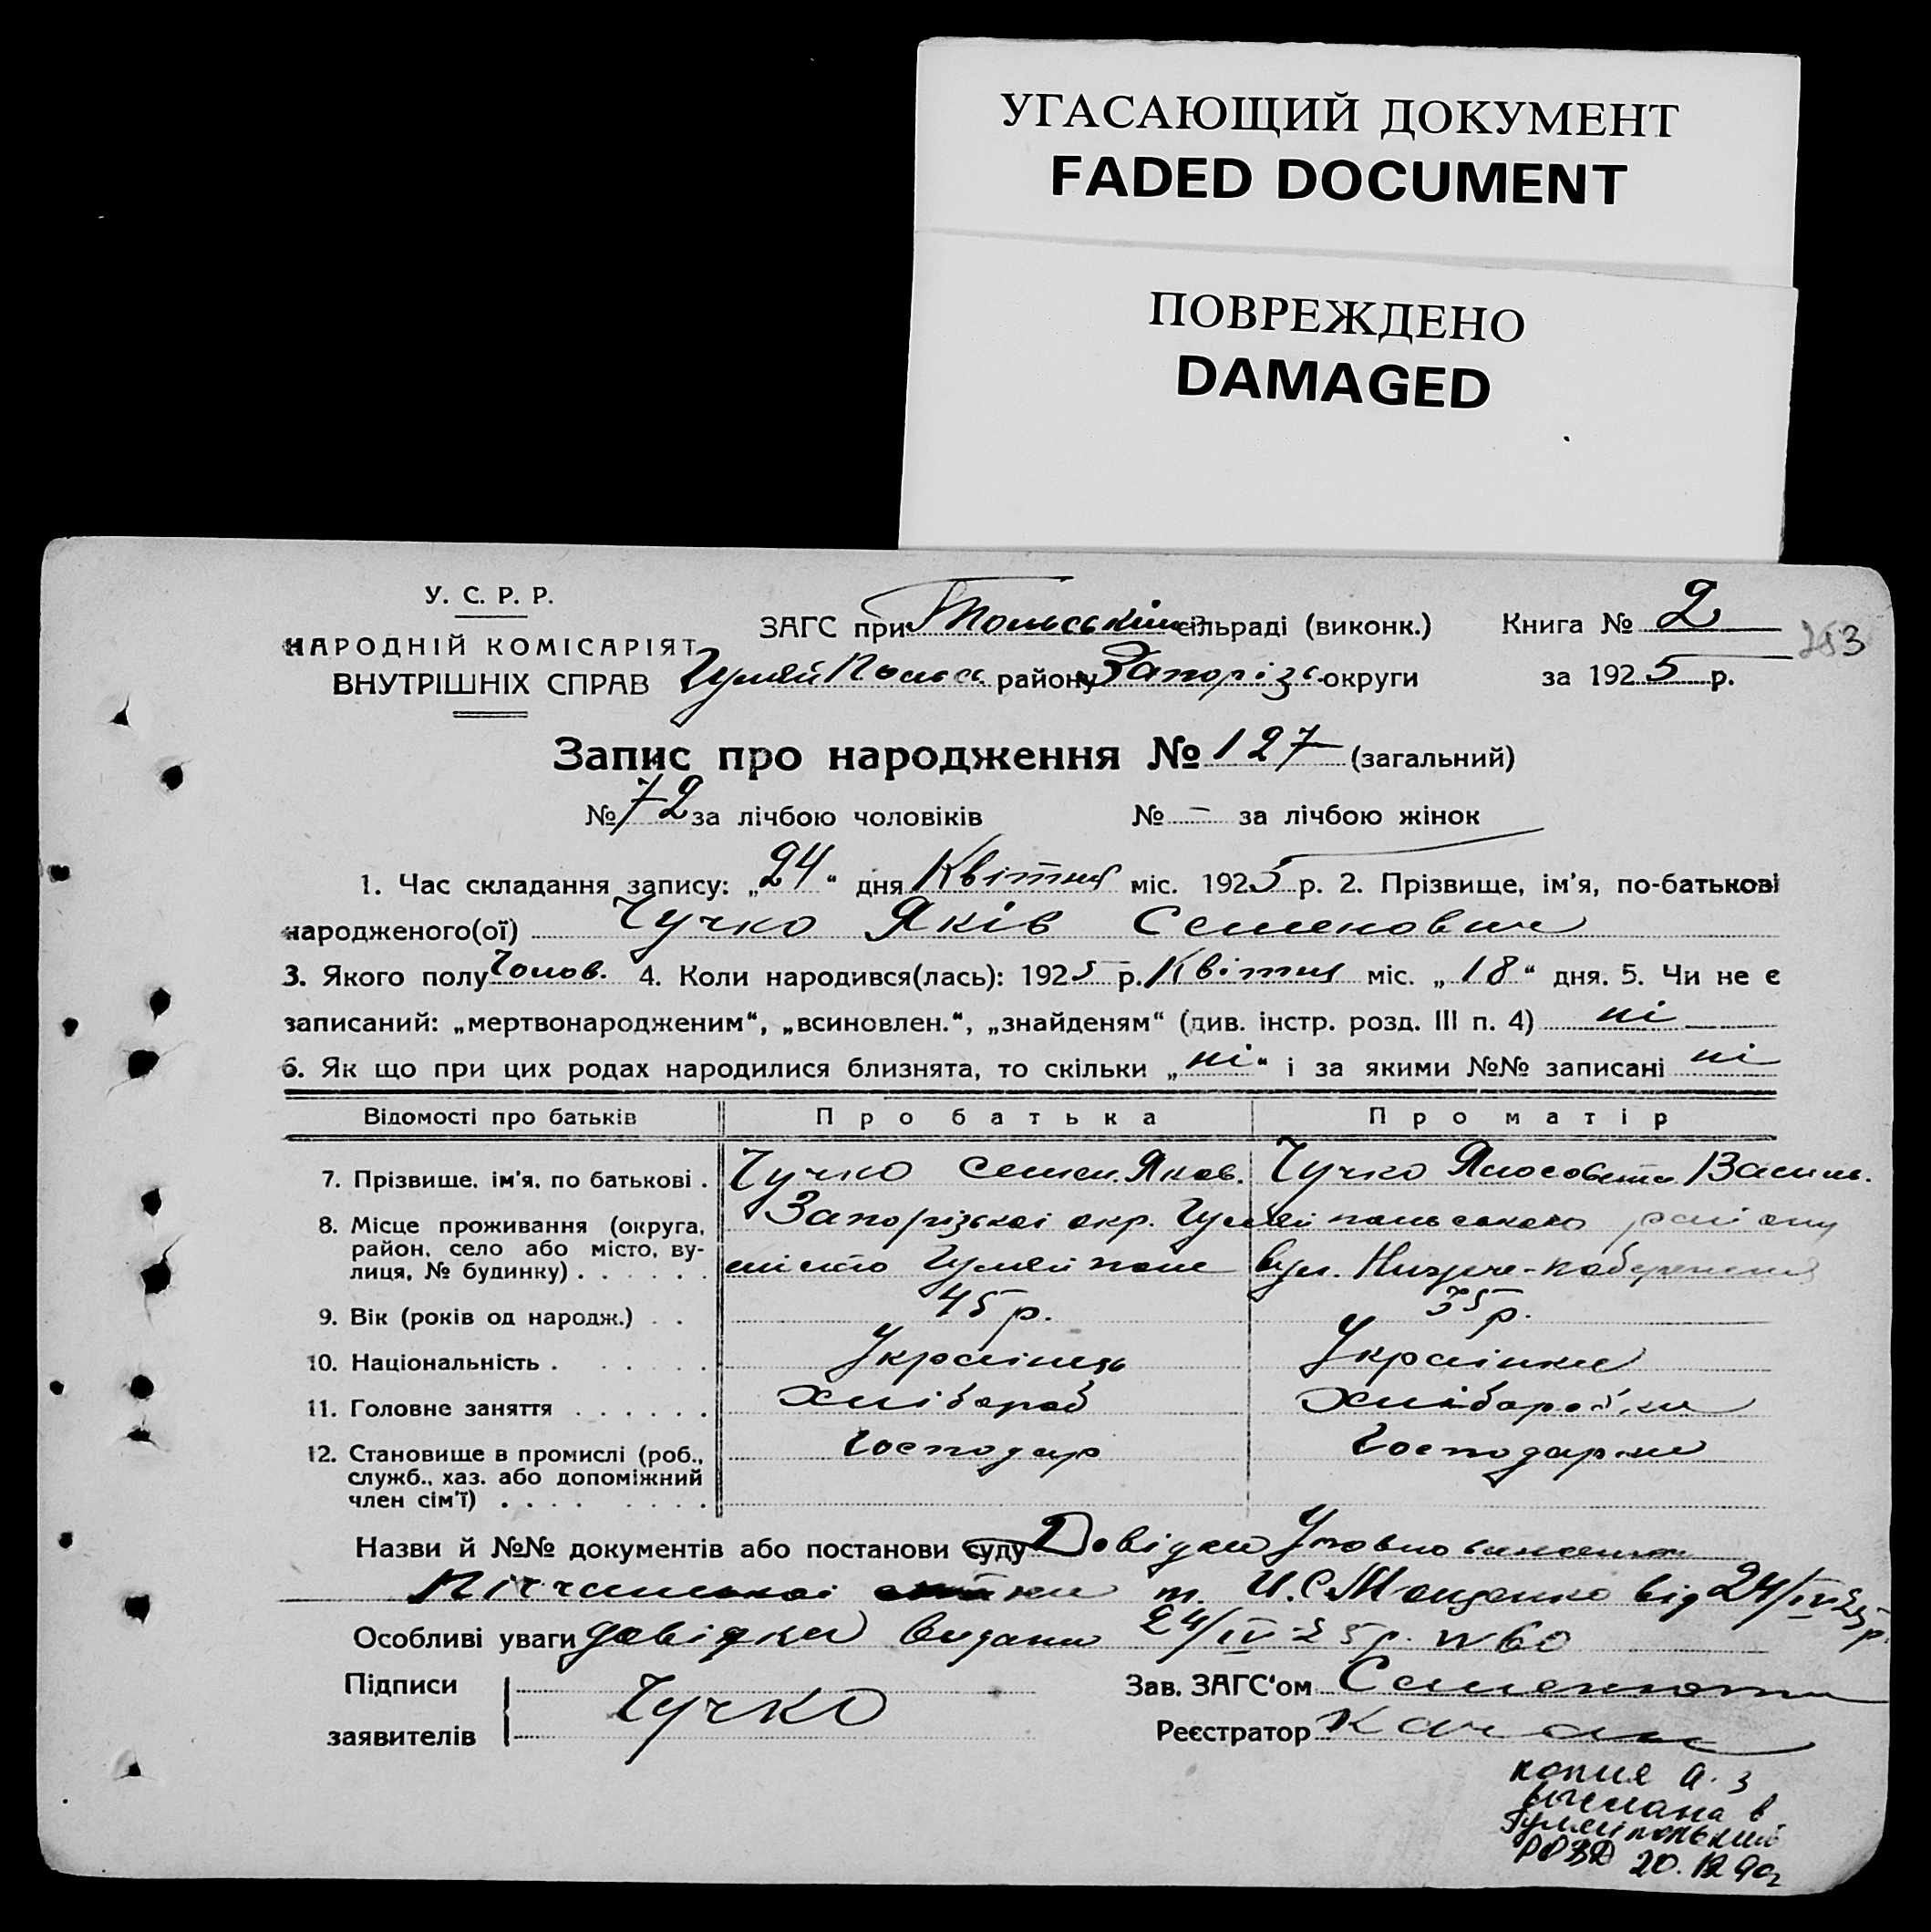 УГАСАЮЩИЙ ДОКУМЕНТ
FADED DOCUMENT
ПОВРЕЖДЕНО
DAMAGED
У. С. Р. Р.
НАРОДНІЙ КОМІСАРІЯТ
ВНУТРІШНІХ СПРАВ
ЗАГС при сільраді (виконк.)
Книга № 2
253
Гуляй Польс. району Запорізь. округи
за 1925 р.
Запис про народження № 127 (загальний)
№ 72 за лічбою чоловіків № – за лічбою жінок
1. Час складання запису: „24“ дня Квітня міс. 1925 р. 2. Прізвище, ім'я, по-батькові
народженого(ої) Чучко Яків Семенович
3. Якого полу Чолов. 4. Коли народився(лась): 1925 р. Квітня міс. „18“ дня. 5. Чи не є
записаний: „мертвонародженим“, „всиновлен.“, „знайденям“ (див. інстр. розд. III п. 4) ні
6. Як що при цих родах народилися близнята, то скільки „ні“ і за якими №№ записані ні
Відомості про батьків Про батька Про матір
7. Прізвище, ім'я, по батькові . Чучко Семен. Яков. Чучко Василь.
8. Місце проживання (округа, район, село або місто, вулиця, № будинку) . . . . . . Запорізької окр. Гуляйпольського району
місто Гуляйполе вул. Нижче-
9. Вік (років од народж.) . . 45 р. 35 р.
10. Національність . . . . . . Українець Українка
11. Головне заняття . . . . . . Хлібороб Хліборобка
12. Становище в промислі (роб., служб., хаз. або допоміжний член сім'ї) . . . . . . . . Господар Господарка
Назви й №№ документів або постанови суду Довідка
т. И. С. від 24/IV-25 р.
Особливі уваги довідка видана 24/IV-25 р. № 60
Підписи
заявителів Чучко
Зав. ЗАГС'ом
Реєстратор
копия а. з
выслана в
Гуляйпольский
РОВД 20.12.90г